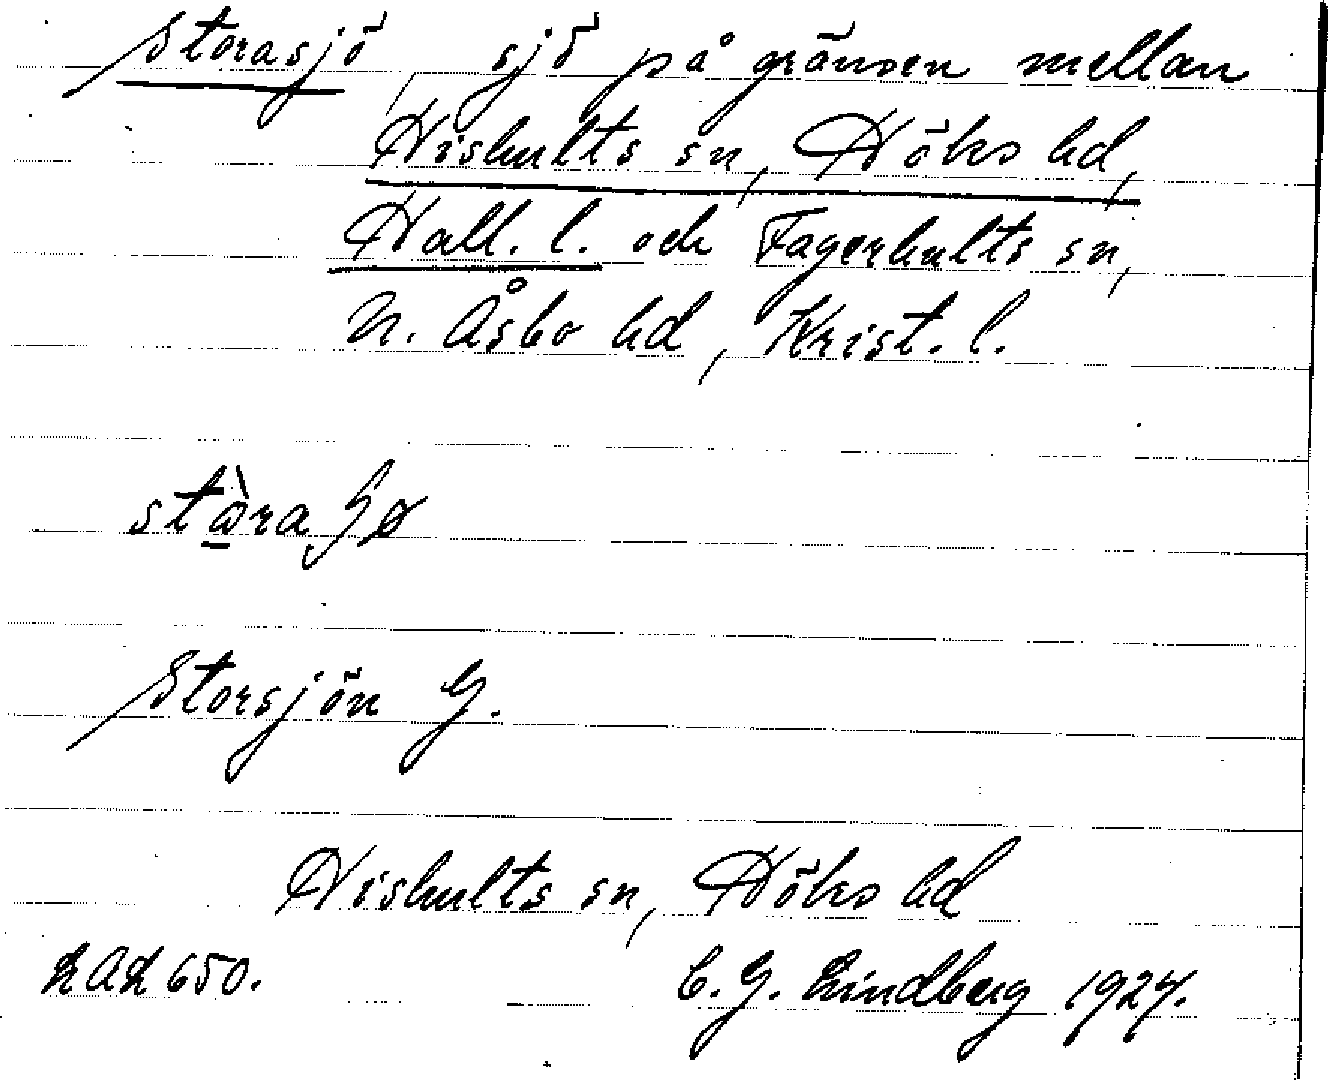 Storasjö sjö på gränsen mellan
Hishults sn, Höks hd,
Hall. l. och Fagerhults sn,
N. Åsbo hd, Krist. l.
Storsjön G.
Hishults sn, Höks hd
LAL 650. C. G. Lindberg 1924.